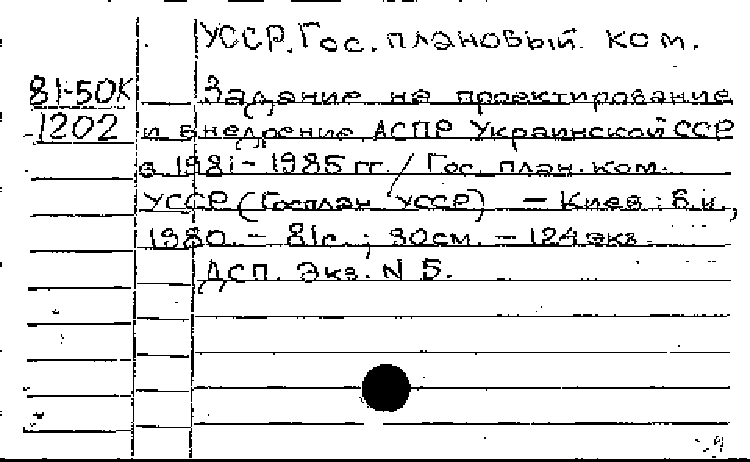 УССР. Гос. плановый ком.
81-50К Задание на проектирование
1202 и внедрение АСПР Украинской ССР
в 1981-1985 гг. / Гос. план. ком.
УССР (Госплан УССР) - Киев : Б.и.,
1980. - 81с.; 30см. - 124 экз.
ДСП. Экз. N 5.